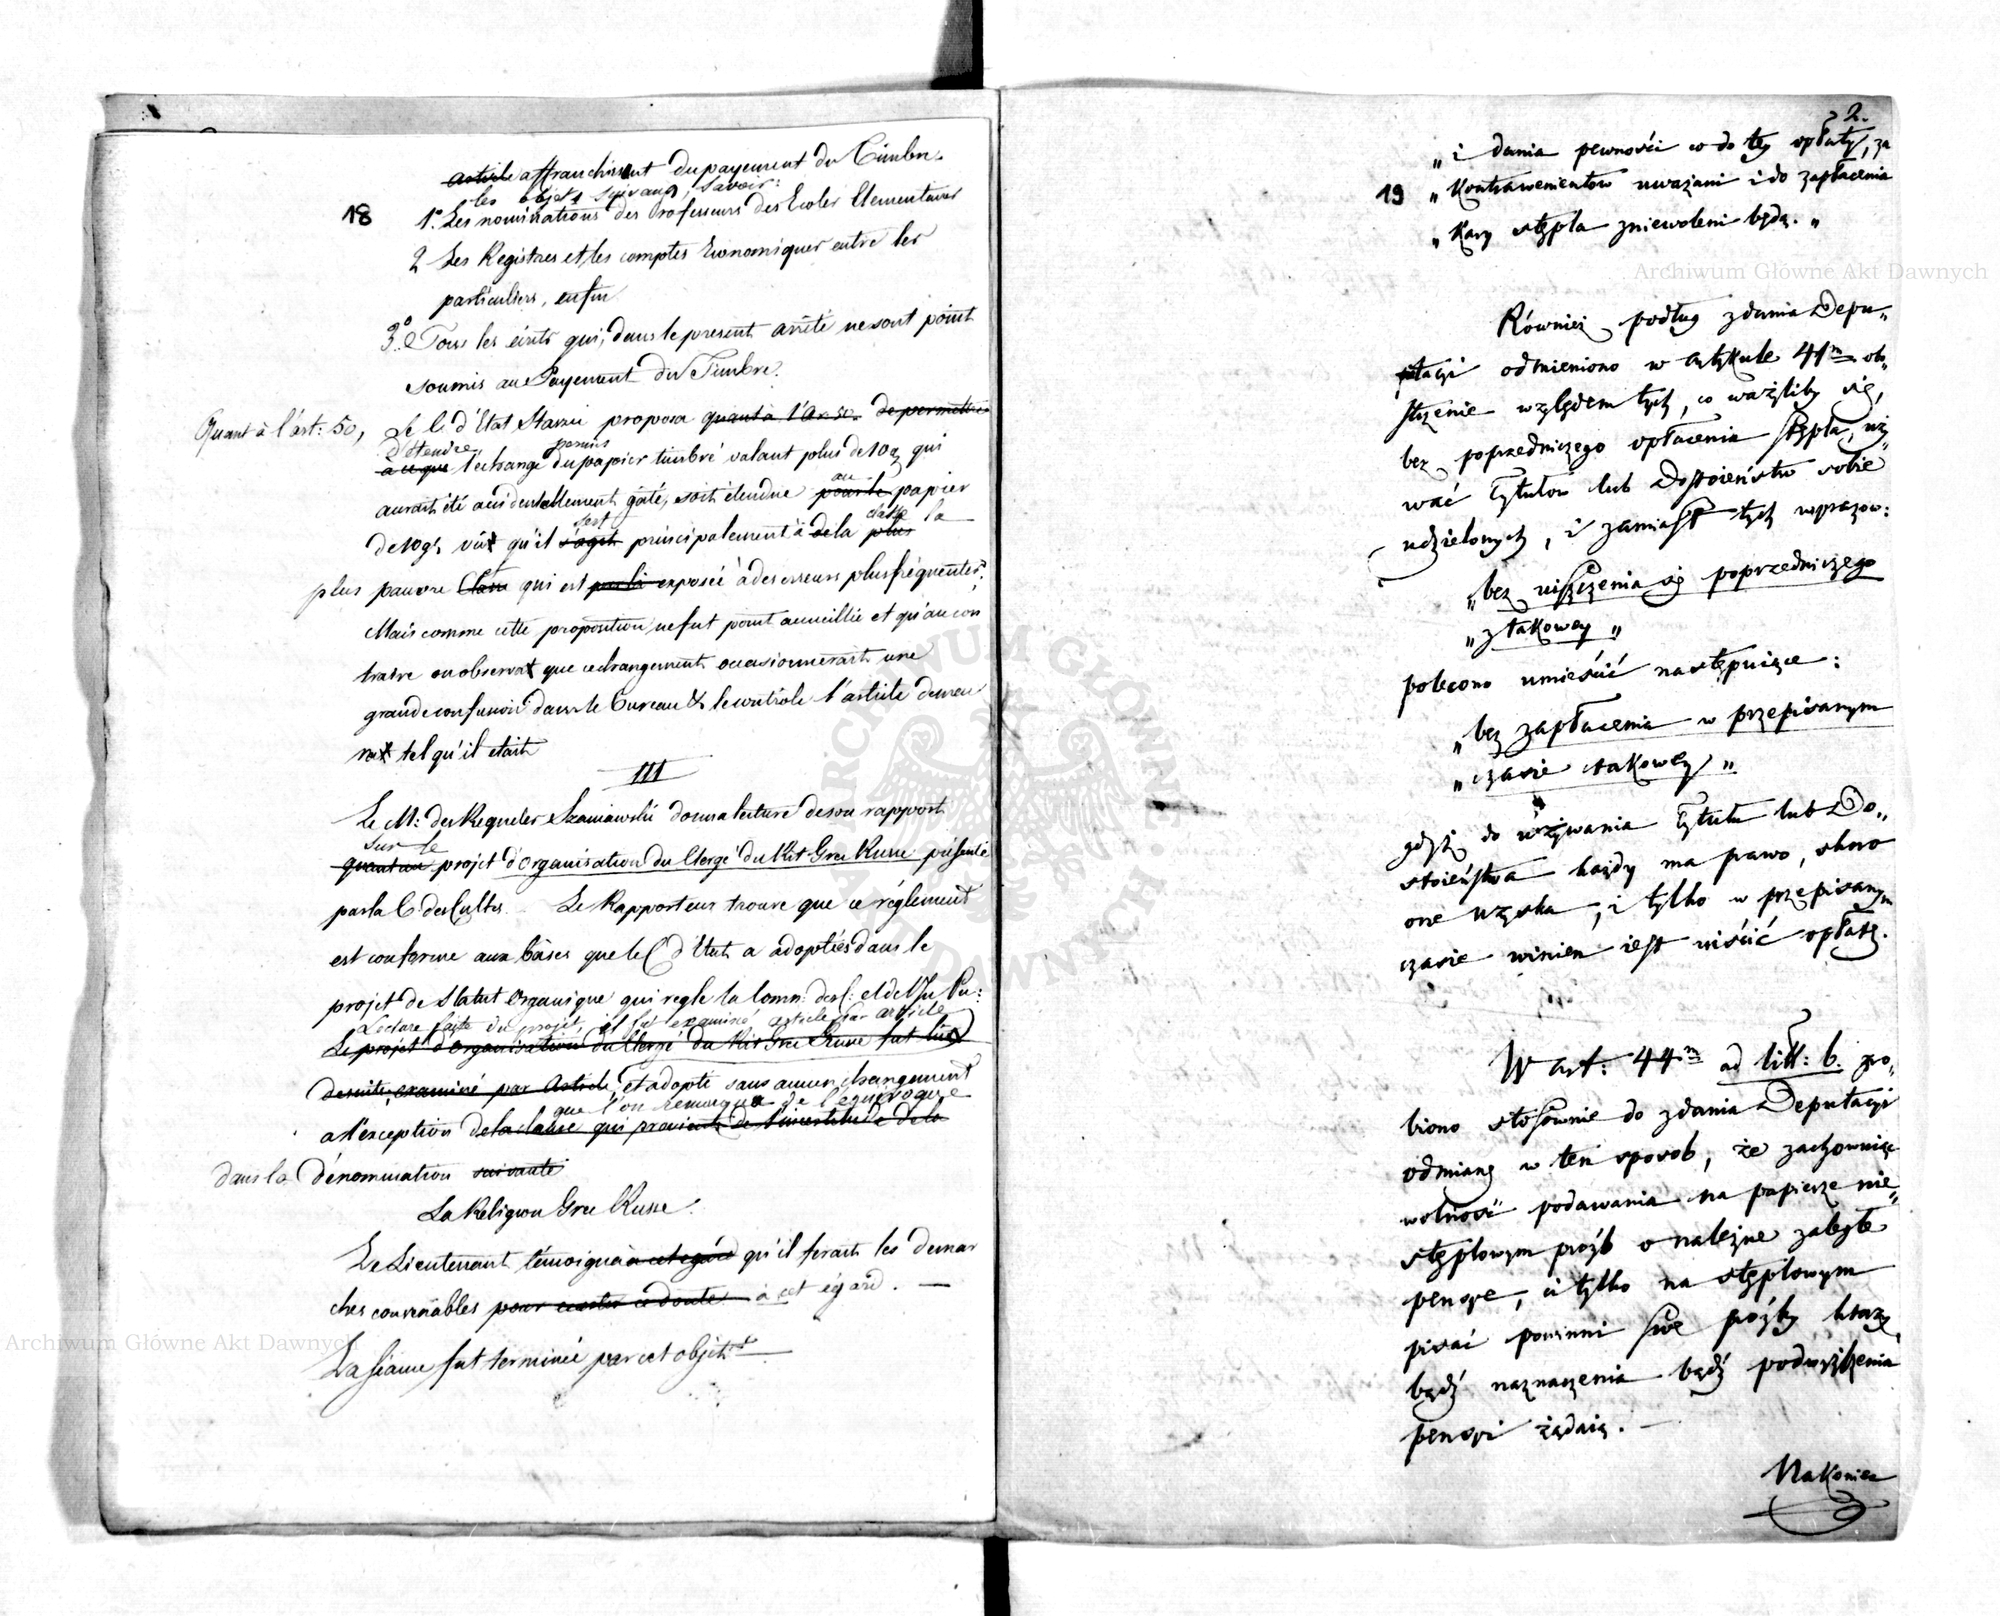 18
article affranchissent du payement du Timbre
les objets suivans, savoir:
1° Les nominations des Professeurs des Ecoles Elementaires
2 Les Registres et les comptes Economiques entre les
particuliers, enfin
3° Tous les écrits qui, dans le present arrêté ne sont point
soumis au Payement du Timbre.
Quant à l'art: 50, Le C. d'Etat Staszic proposa quant à l'Ar. 50. de permettre
d'étendre permis
à ce que l'echange du papier timbré valant plus de 10 qui
aurait été accidentallement gâté, soit étendue pour le papier
au
de 10 g, vû qu'il s'agit principalement à de la plus
sert classe la
plus pauvre Classe qui est exposée à des erreurs plus fréquentes.
Mais comme cette proposition ne fut point accueillie et qu'au con
traire on observa que ce changement occasionnerait une
grande confusion dans le Bureau & le controle l'article demeu
ra tel qu'il etait
III
Le M: des Requêtes Szaniawski donna lecture de son rapport
sur le
quant au projet d'organisation du Clergé du Rit Grec Russe présenté
par la C. des Cultes. Le Rapporteur trouve que ce réglement
est conforme aux bâses que le C. d'Etat a adoptées dans le
projet de Statut Organique qui regle la Comn: des C: et de l'In. Pu:
Lecture faite du projet, il fut examiné article par article
Le projet d'organisation du Clergé du Rit Grec Russe fut lu
de suite, examiné par Article, et adopté sans aucun changement
que l'on remarqua de l'équivoque
a l'exception de la clause qui provient de l'incertitude de la
dans la dénomination suivante
La Religion Grec Russe.
Le Lieutenant témoigna à cet égard qu'il ferait les demar
ches convenables pour ce doute à cet égard. —
La séance fut terminée par cet objet. —
2.
19
„ i dania pewności co do tey opłaty, za
„ Kontrawenientów uważani i do zapłacenia
„ Kary stępla zniewoleni będą. „
Również podług zdania Depu„
tacyi odmieniono w artykule 41m ob„
strzenie względem tych, co ważyliby się,
bez poprzedniczego opłacenia stępla, uży„
wać Tytułów lub Dostoieństw sobie
udzielonych, i zamiast tych wyrazów:
„bez uiszczenia się poprzedniczego
„z takowey „
polecono umieścić następuiące:
„bez zapłacenia w przepisanym
„czasie takowey „
gdyż do używania Tytułu lub Do„
stoieństwa każdy ma prawo, skoro
one uzyska, i tylko w przepisanym
czasie winien iest uiścić opłatę.
W art: 44m ad litt: b. zro„
biono stosownie do zdania Deputacyi
odmianę w ten sposób, że zachowuiąc
wolność podawania na papierze nie„
stęplowym próźb o należne zaległe
pensye, ci tylko na stęplowym
pisać powinni swe próźby którzy
bądź naznaczenia bądź podwyższenia
pensyi żądaią. —
Nakoniec
Archiwum Główne Akt Dawnych
Archiwum Główne Akt Dawnych
ARCHIWUM GŁÓWNE AKT DAWNYCH